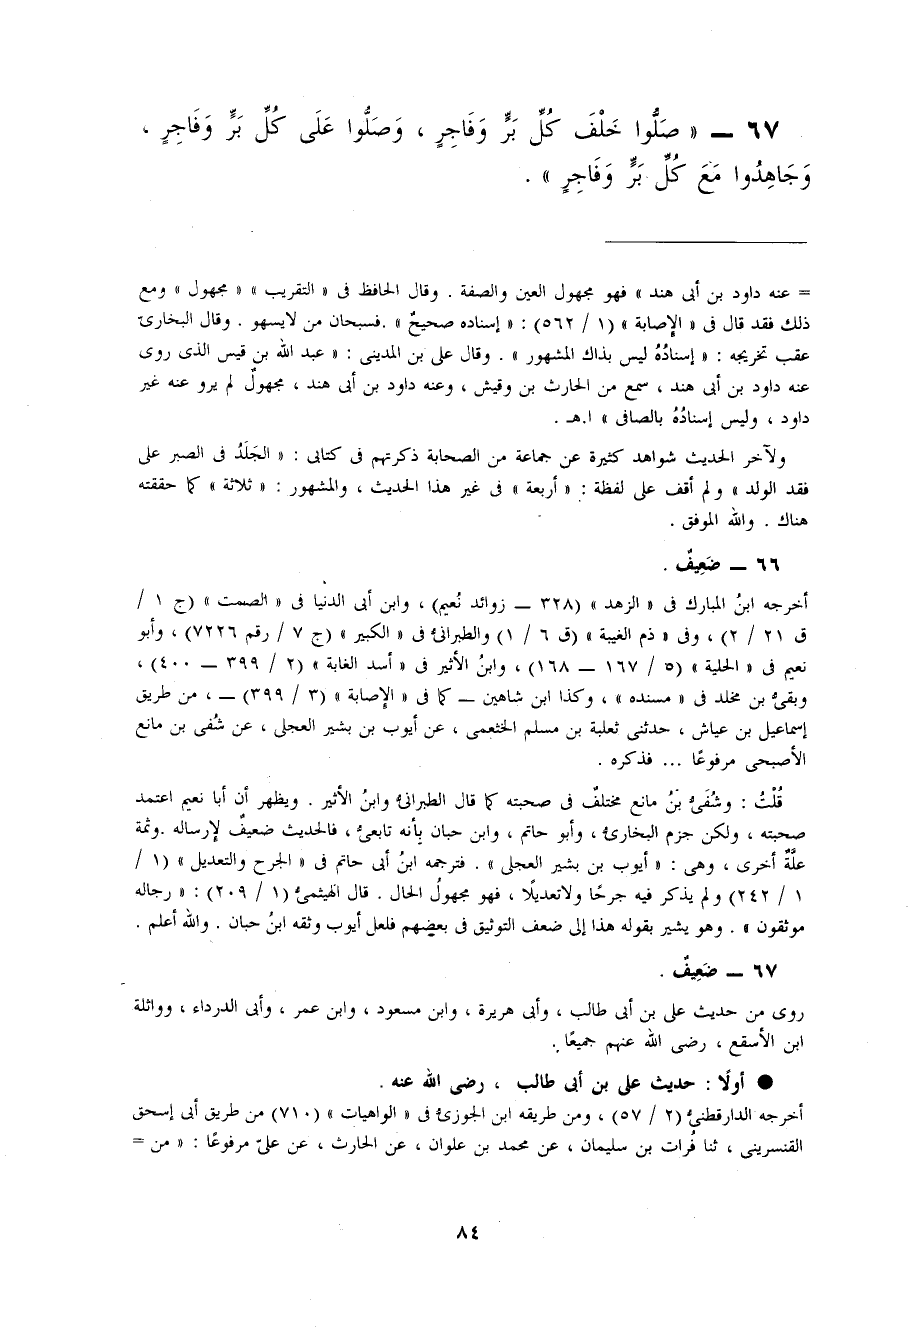 ٦٧ ــ « صَلُّوا خَلْفَ كُلِّ بَرٍّ وَفَاجِرٍ ، وَصَلُّوا عَلَى كُلِّ بَرٍّ وَفَاجِرٍ ،
وَجَاهِدُوا مَعَ كُلِّ بَرٍّ وَفَاجِرٍ » .
= عنه داود بن أبى هند » فهو مجهول العين والصفة . وقال الحافظ فى « التقريب » « مجهول » ومع
ذلك فقد قال فى « الإصابة » (١ / ٥٦٢) : « إسناده صحيحٌ » .فسبحان من لايسهو . وقال البخارىّ
عقب تخريجه : « إسنادُهُ ليس بذاك المشهور » . وقال على بن المدينى : « عبد الله بن قيس الذى روى
عنه داود بن أبى هند ، سمع من الحارث بن وقيش ، وعنه داود بن أبى هند ، مجهولٌ لم يرو عنه غير
داود ، وليس إسنادُهُ بالصافى » ا.هـ .
ولآخر الحديث شواهد كثيرة عن جماعة من الصحابة ذكرتهم فى كتابى : « الجَلَدُ فى الصبر على
فقد الولد » ولم أقف على لفظة : « أربعة » فى غير هذا الحديث ، والمشهور : « ثلاثة » كما حققته
هناك . والله الموفق .
٦٦ ــ ضَعِيفٌ .
أخرجه ابنُ المبارك فى « الزهد » (٣٢٨ ــ زوائد نُعيم) ، وابن أبى الدنيا فى « الصمت » (ج ١ /
ق ٢١ / ٢) ، وفى « ذم الغيبة » (ق ٦ / ١) والطبرانىُّ فى « الكبير » (ج ٧ / رقم ٧٢٢٦) ، وأبو
نعيم فى « الحلية » (٥ / ١٦٧ ــ ١٦٨) ، وابنُ الأثير فى « أسد الغابة » (٢ / ٣٩٩ ــ ٤٠٠) ،
وبقىُّ بن مخلد فى « مسنده » ، وكذا ابن شاهين ــ كما فى « الإصابة » (٣ / ٣٩٩) ــ ، من طريق
إسماعيل بن عياش ، حدثنى ثعلبة بن مسلم الخثعمى ، عن أيوب بن بشير العجلى ، عن شُفى بن مانع
الأصبحى مرفوعًا ... فذكره .
قُلْتُ : وشُفَىُّ بنُ مانع مختلفٌ فى صحبته كما قال الطبرانىُّ وابنُ الأثير . ويظهر أن أبا نعيم اعتمد
صحبته ، ولكن جزم البخارىُّ ، وأبو حاتم ، وابن حبان بأنه تابعىُّ ، فالحديث ضعيفٌ لإرساله .وثمة
علَّةٌ أخرى ، وهى : « أيوب بن بشير العجلى » . فترجمه ابنُ أبى حاتم فى « الجرح والتعديل » (١ /
١ / ٢٤٢) ولم يذكر فيه جرحًا ولاتعديلًا ، فهو مجهولُ الحال . قال الهيثمىُّ (١ / ٢٠٩) : « رجاله
موثقون » . وهو يشير بقوله هذا إلى ضعف التوثيق فى بعضهم فلعل أيوب وثقه ابنُ حبان . والله أعلم .
٦٧ ــ ضَعِيفٌ .
روى من حديث على بن أبى طالب ، وأبى هريرة ، وابن مسعود ، وابن عمر ، وأبى الدرداء ، وواثلة
ابن الأسقع ، رضى الله عنهم جميعًا .
● أولًا : حديث على بن أبى طالب ، رضى الله عنه .
أخرجه الدارقطنىُّ (٢ / ٥٧) ، ومن طريقه ابن الجوزىُّ فى « الواهيات » (٧١٠) من طريق أبى إسحق
القنسرينى ، ثنا فُرات بن سليمان ، عن محمد بن علوان ، عن الحارث ، عن علىّ مرفوعًا : « من =
٨٤